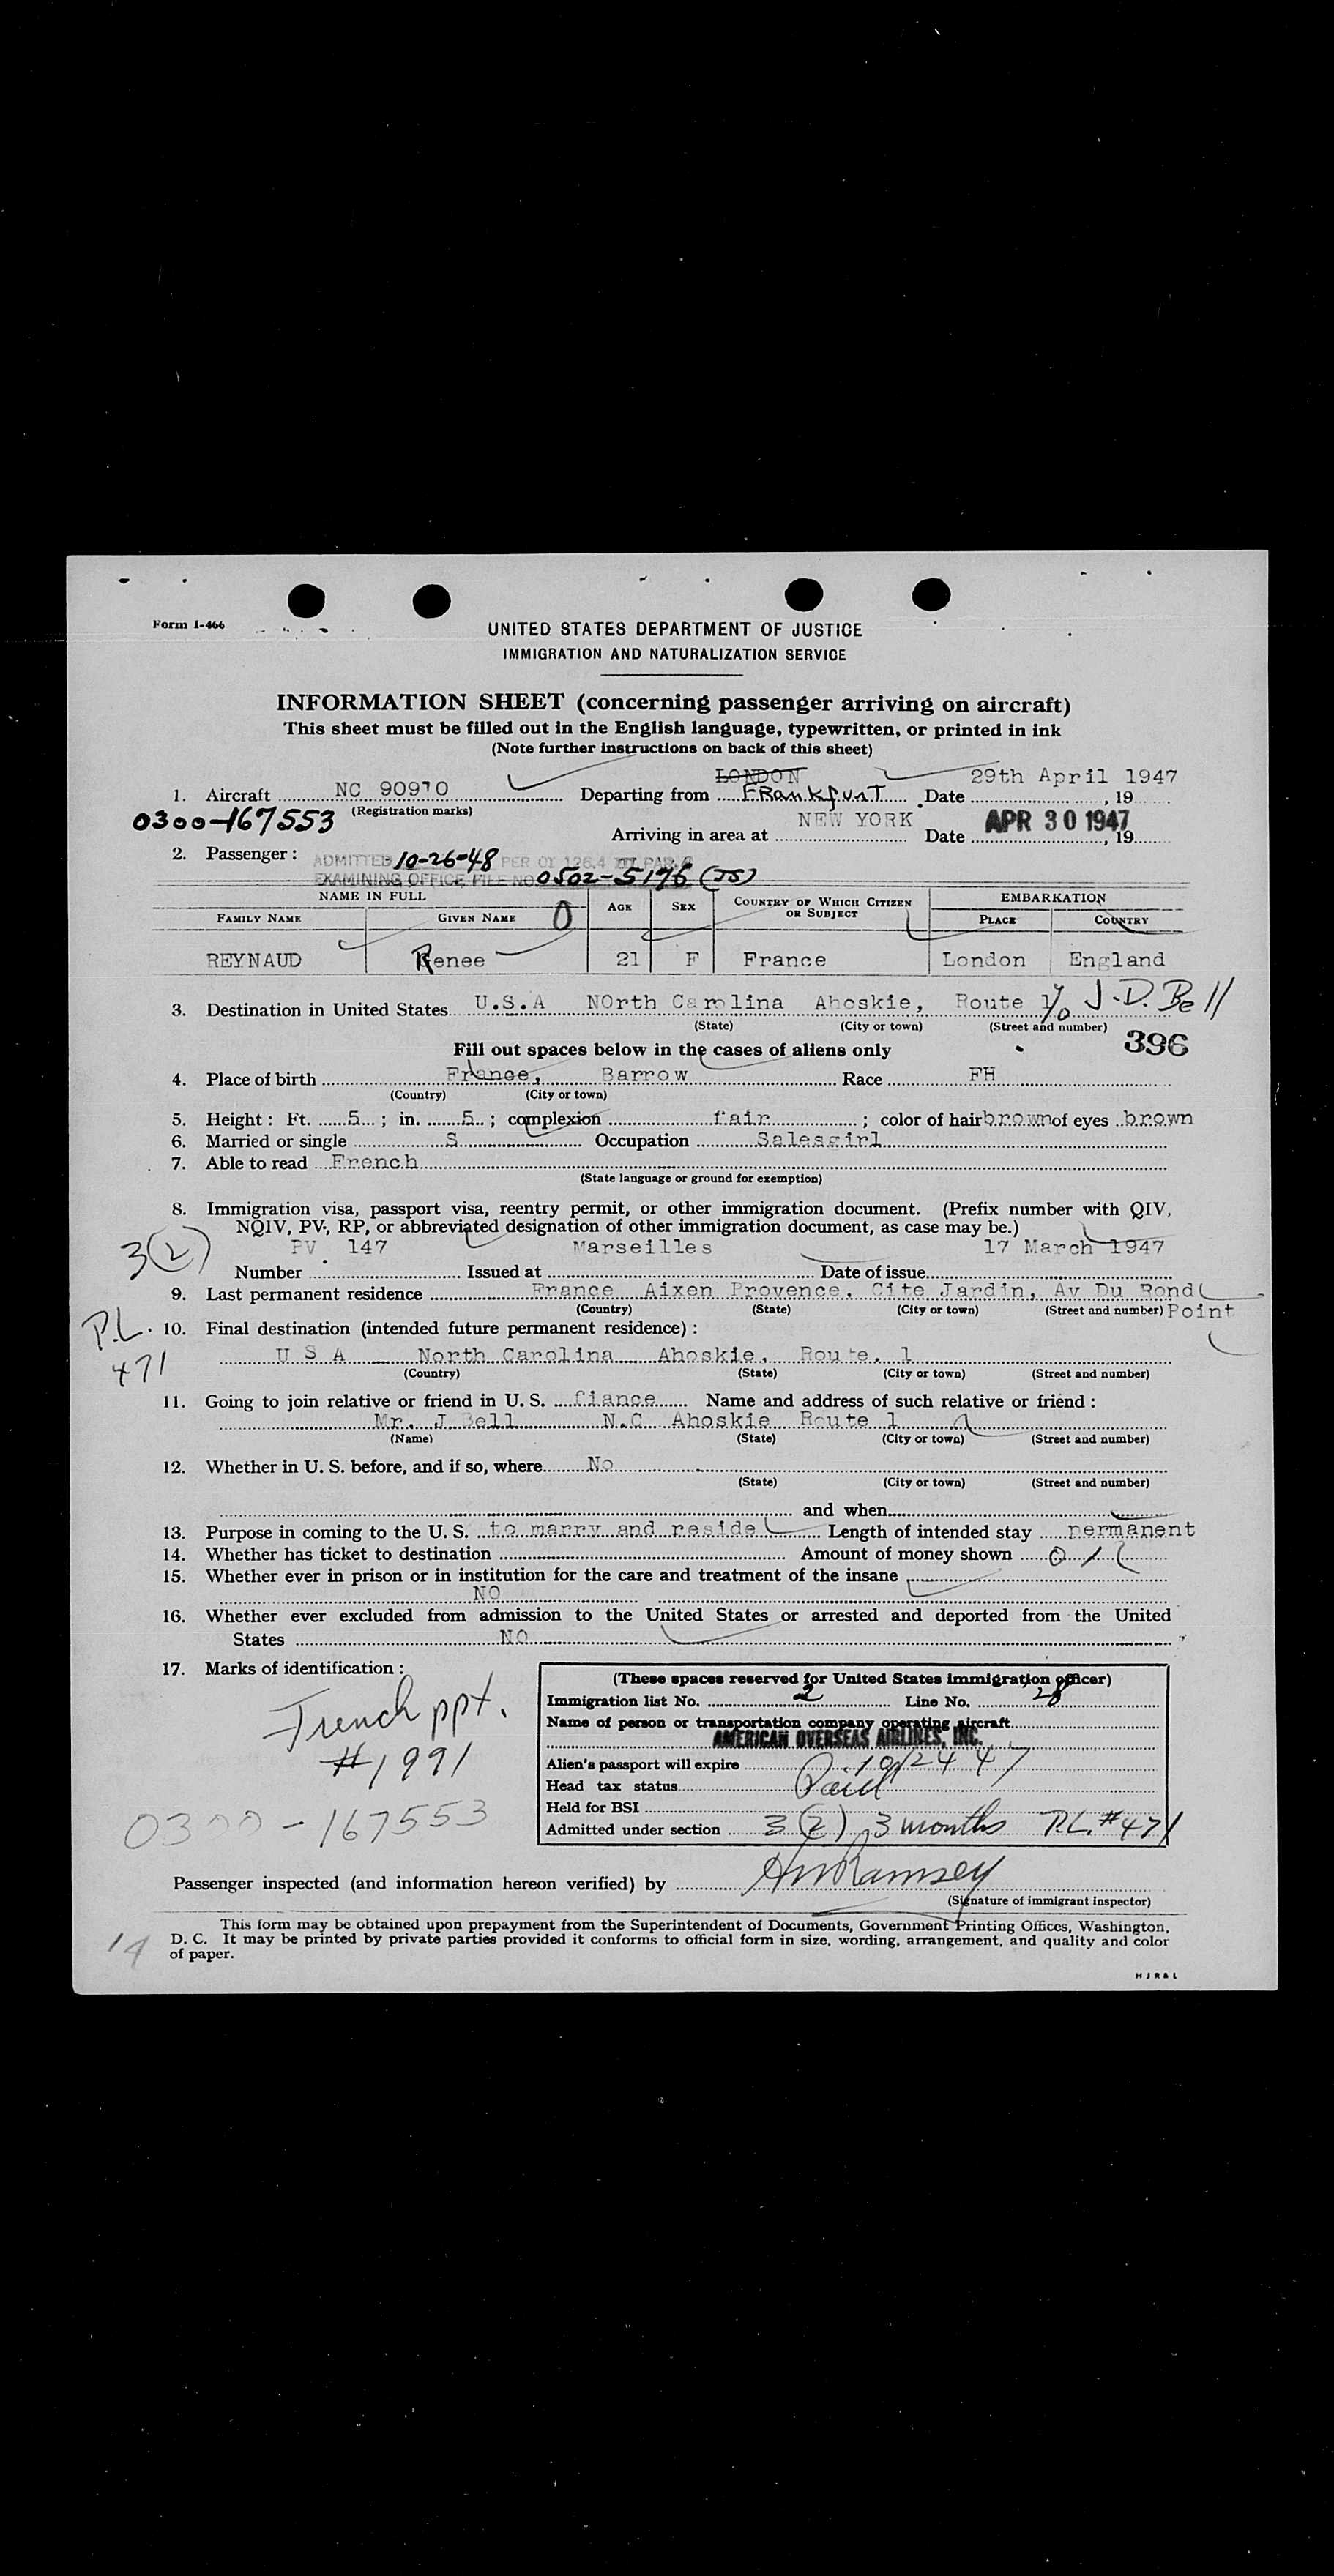 Form I-466
UNITED STATES DEPARTMENT OF JUSTICE
IMMIGRATION AND NATURALIZATION SERVICE
INFORMATION SHEET (concerning passenger arriving on aircraft)
This sheet must be filled out in the English language, typewritten, or printed in ink
(Note further instructions on back of this sheet)
LONDON
1. Aircraft NC 90910 Departing from FRankfurT Date 29th April 1947, 19
0300-167553 (Registration marks)
Arriving in area at NEW YORK Date APR 30 1947, 19
2. Passenger: ADMITTED 10-26-48 PER OI 126.4
EXAMINING OFFICE FILE NO. 0502-5176 (JS)
NAME IN FULL AGE SEX COUNTRY OF WHICH CITIZEN OR SUBJECT EMBARKATION
FAMILY NAME GIVEN NAME PLACE COUNTRY
REYNAUD Renee 21 F France London England
3. Destination in United States U.S.A NOrth Carolina Ahoskie, Route 1 % J.D. Bell
(State) (City or town) (Street and number)
396
Fill out spaces below in the cases of aliens only
4. Place of birth France, Barrow Race FH
(Country) (City or town)
5. Height: Ft. 5; in. 5; complexion fair; color of hair brown of eyes brown
6. Married or single S Occupation Salesgirl
7. Able to read French
(State language or ground for exemption)
8. Immigration visa, passport visa, reentry permit, or other immigration document. (Prefix number with QIV,
NQIV, PV, RP, or abbreviated designation of other immigration document, as case may be.)
3(2)
PV 147 Marseilles 17 March 1947
Number Issued at Date of issue
9. Last permanent residence France Aixen Provence, Cite Jardin, Av Du Rond
(Country) (State) (City or town) (Street and number) Point
P.L. 471
10. Final destination (intended future permanent residence):
U S A North Carolina Ahoskie, Route. 1
(Country) (State) (City or town) (Street and number)
11. Going to join relative or friend in U. S. fiance Name and address of such relative or friend:
Mr. J Bell N.C Ahoskie Route 1
(Name) (State) (City or town) (Street and number)
12. Whether in U. S. before, and if so, where No
(State) (City or town) (Street and number)
and when
13. Purpose in coming to the U. S. to marry and reside Length of intended stay permanent
14. Whether has ticket to destination Amount of money shown 0
15. Whether ever in prison or in institution for the care and treatment of the insane
NO
16. Whether ever excluded from admission to the United States or arrested and deported from the United
States NO
17. Marks of identification:
French ppt.
#1991
0300-167553
(These spaces reserved for United States immigration officer)
Immigration list No. 2 Line No. 28
Name of person or transportation company operating aircraft
AMERICAN OVERSEAS AIRLINES, INC.
Alien's passport will expire 10/24 47
Head tax status Paid
Held for BSI
Admitted under section 3(2) 3 months P.L. #471
Passenger inspected (and information hereon verified) by Ramsey
(Signature of immigrant inspector)
This form may be obtained upon prepayment from the Superintendent of Documents, Government Printing Offices, Washington,
D. C. It may be printed by private parties provided it conforms to official form in size, wording, arrangement, and quality and color
of paper.
14
H J R & L